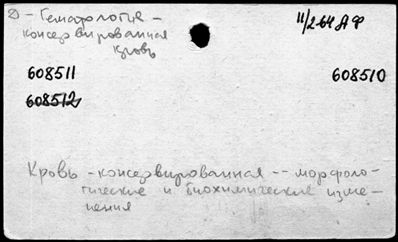 Д - Гематология -
консервированная
кровь
11/2 64 АФ
608511
608510
608512
Кровь - консервированная -- морфоло-
гические и биохимические изме-
нения